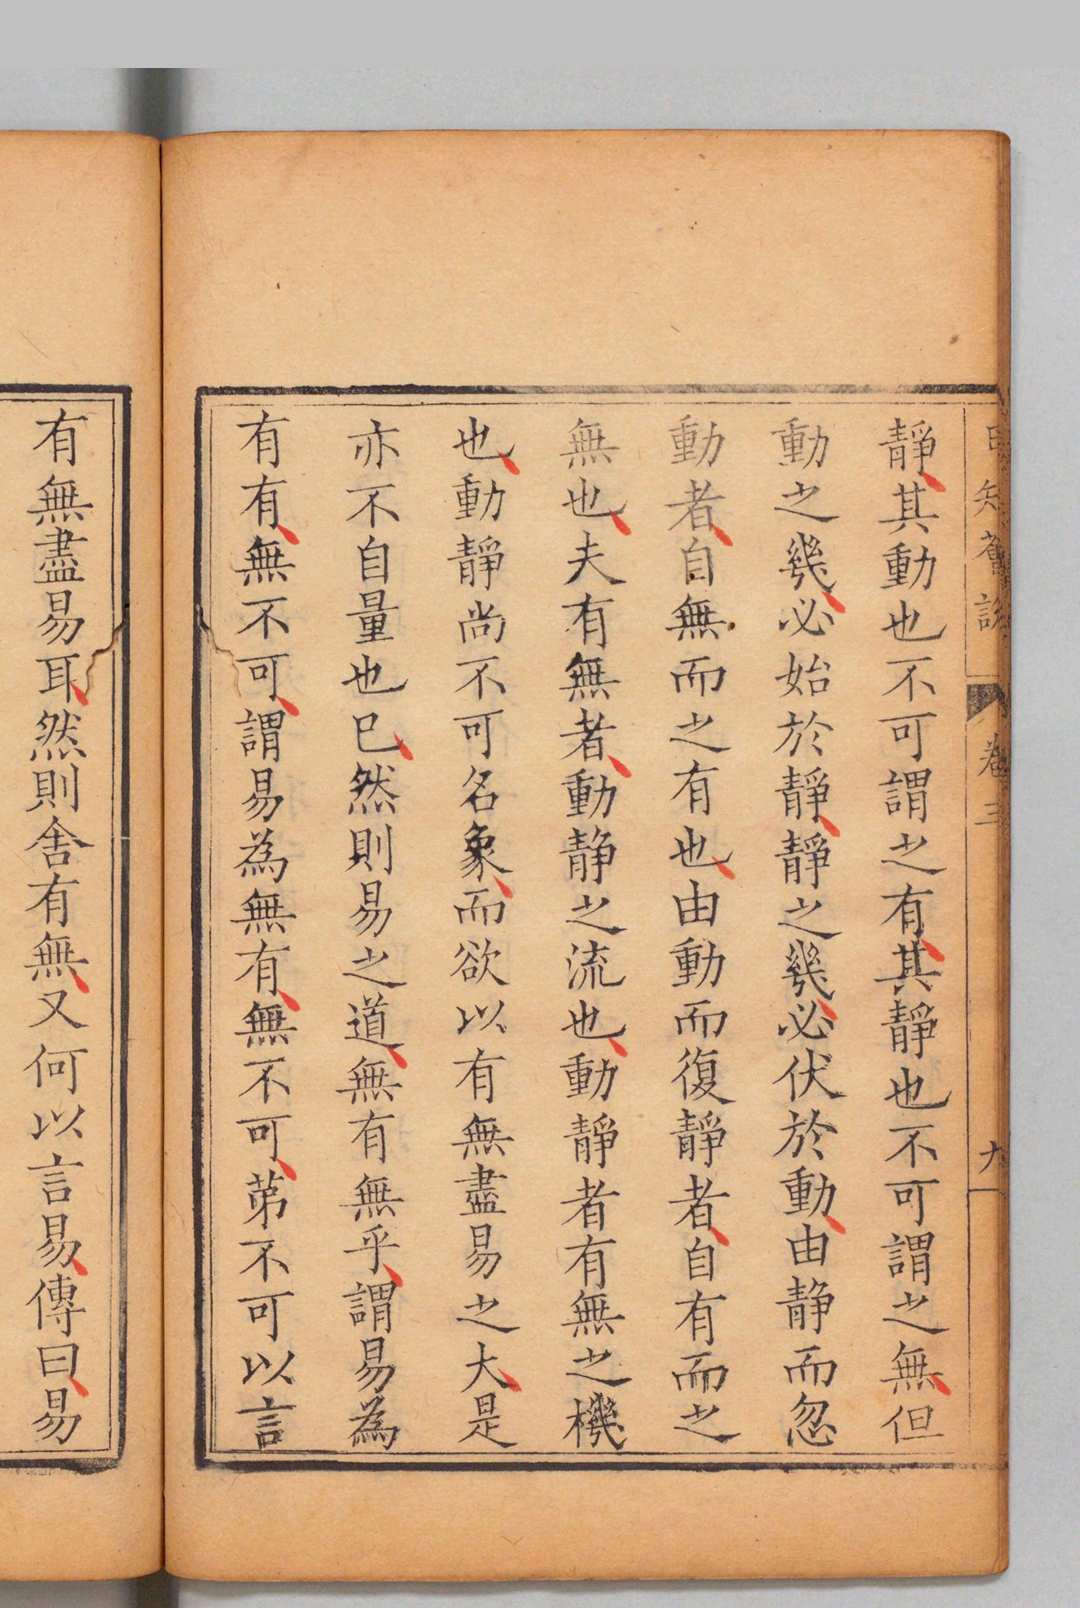 日知薈說 卷三 九
靜其動也不可謂之有其靜也不可謂之無但
動之幾必始於靜靜之幾必伏於動由靜而忽
動者自無而之有也由動而復靜者自有而之
無也夫有無者動靜之流也動靜者有無之機
也動靜尚不可名象而欲以有無盡易之大是
亦不自量也已然則易之道無有無乎謂易為
有有無不可謂易為無有無不可第不可以言
有無盡易耳然則舍有無又何以言易傳曰易